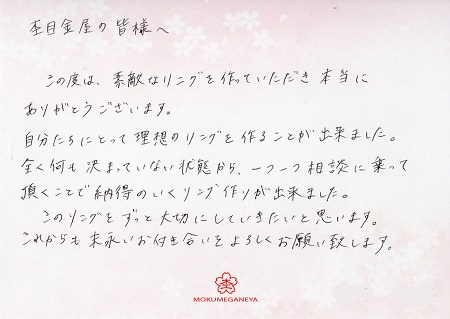 杢目金屋の皆様へ
この度は、素敵なリングを作っていただき本当に
ありがとうございます。
自分たちにとって理想のリングを作ることが出来ました。
全く何も決まっていない状態から、一つ一つ相談に乗って
頂くことで納得のいくリング作りが出来ました。
このリングをずっと大切にしていきたいと思います。
これからも末永いお付き合いをよろしくお願い致します。
杢
MOKUMEGANEYA